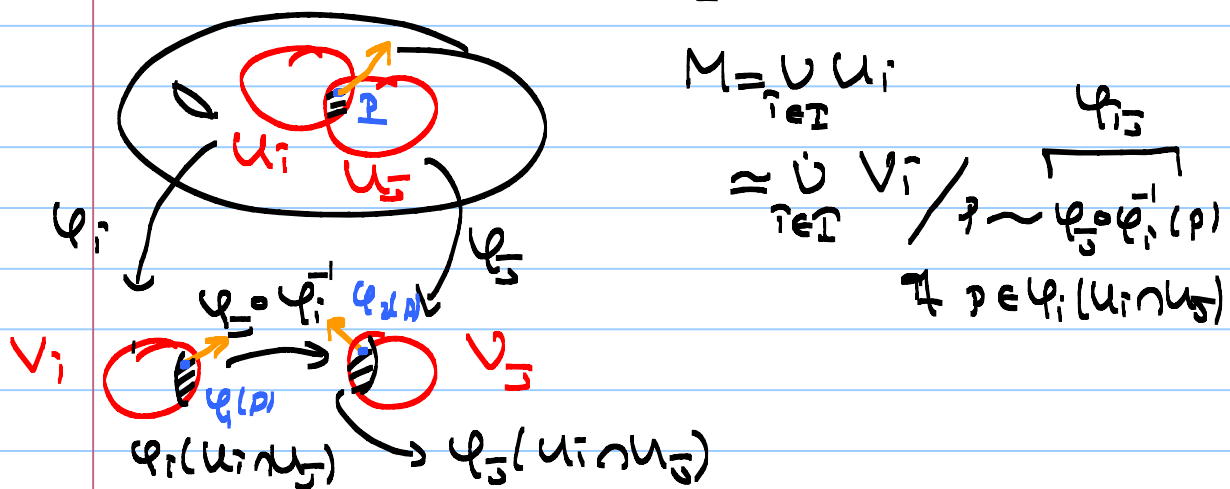 P
U_i
U_j
φ_i
φ_j
φ_j∘φ_i^{-1}
φ_j(p)
V_i
V_j
φ_i(p)
φ_i(U_i∩U_j)
φ_j(U_i∩U_j)
M = ∪_{i∈I} U_i
φ_{ij}
≃ ∪̇_{i∈I} V_i / p ~ φ_j∘φ_i^{-1}(p)
if p ∈ φ_i(U_i∩U_j)